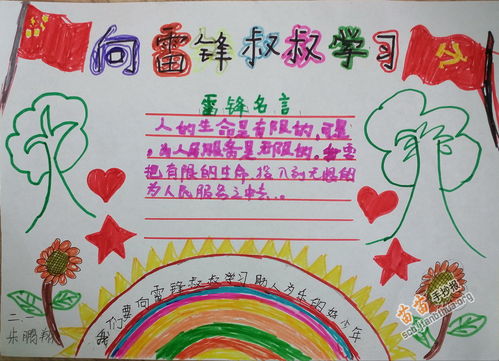 向雷锋叔叔学习
雷锋名言
人的生命是有限的，可是
，为人民服务是无限的，我要
把有限的生命，投入到无限的
为人民服务之中去...。
我们要向雷锋叔叔学习助人为乐的好少年
二、一
朱鹏翔
苗苗手抄报
scb.jfandhua.org